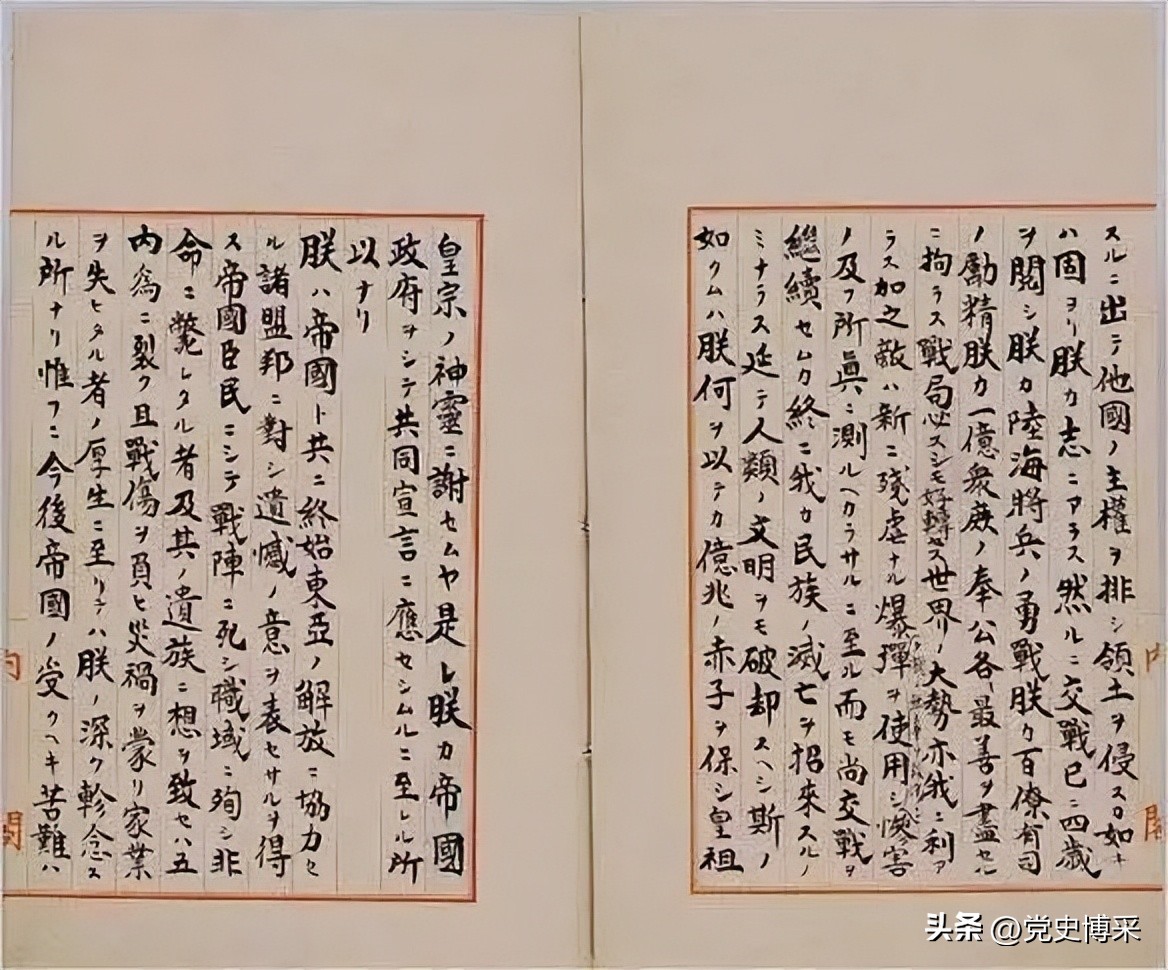 スルニ出テ他國ノ主權ヲ排シ領土ヲ侵スカ如キ
ハ固ヨリ朕カ志ニアラス然ルニ交戰已ニ四歲
ヲ閱シ朕カ陸海將兵ノ勇戰朕カ百僚有司
ノ勵精朕カ一億衆庶ノ奉公各〻最善ヲ盡セル
ニ拘ラス戰局必スシモ好轉セス世界ノ大勢亦我ニ利ア
ラス加之敵ハ新ニ殘虐ナル爆彈ヲ使用シ慘害
ノ及フ所眞ニ測ルヘカラサルニ至ル而モ尚交戰ヲ
繼續セムカ終ニ我カ民族ノ滅亡ヲ招來スルノ
ミナラス延テ人類ノ文明ヲモ破却スヘシ斯ノ
如クムハ朕何ヲ以テカ億兆ノ赤子ヲ保シ皇祖
皇宗ノ神靈ニ謝セムヤ是レ朕カ帝國
政府ヲシテ共同宣言ニ應セシムルニ至レル所
以ナリ
朕ハ帝國ト共ニ終始東亞ノ解放ニ協力セ
ル諸盟邦ニ對シ遺憾ノ意ヲ表セサルヲ得
ス帝國臣民ニシテ戰陣ニ死シ職域ニ殉シ非
命ニ斃レタル者及其ノ遺族ニ想ヲ致セハ五
内爲ニ裂ク且戰傷ヲ負ヒ災禍ヲ蒙リ家業
ヲ失ヒタル者ノ厚生ニ至リテハ朕ノ深ク軫念ス
ル所ナリ惟フニ今後帝國ノ受クヘキ苦難ハ
头条 @党史博采